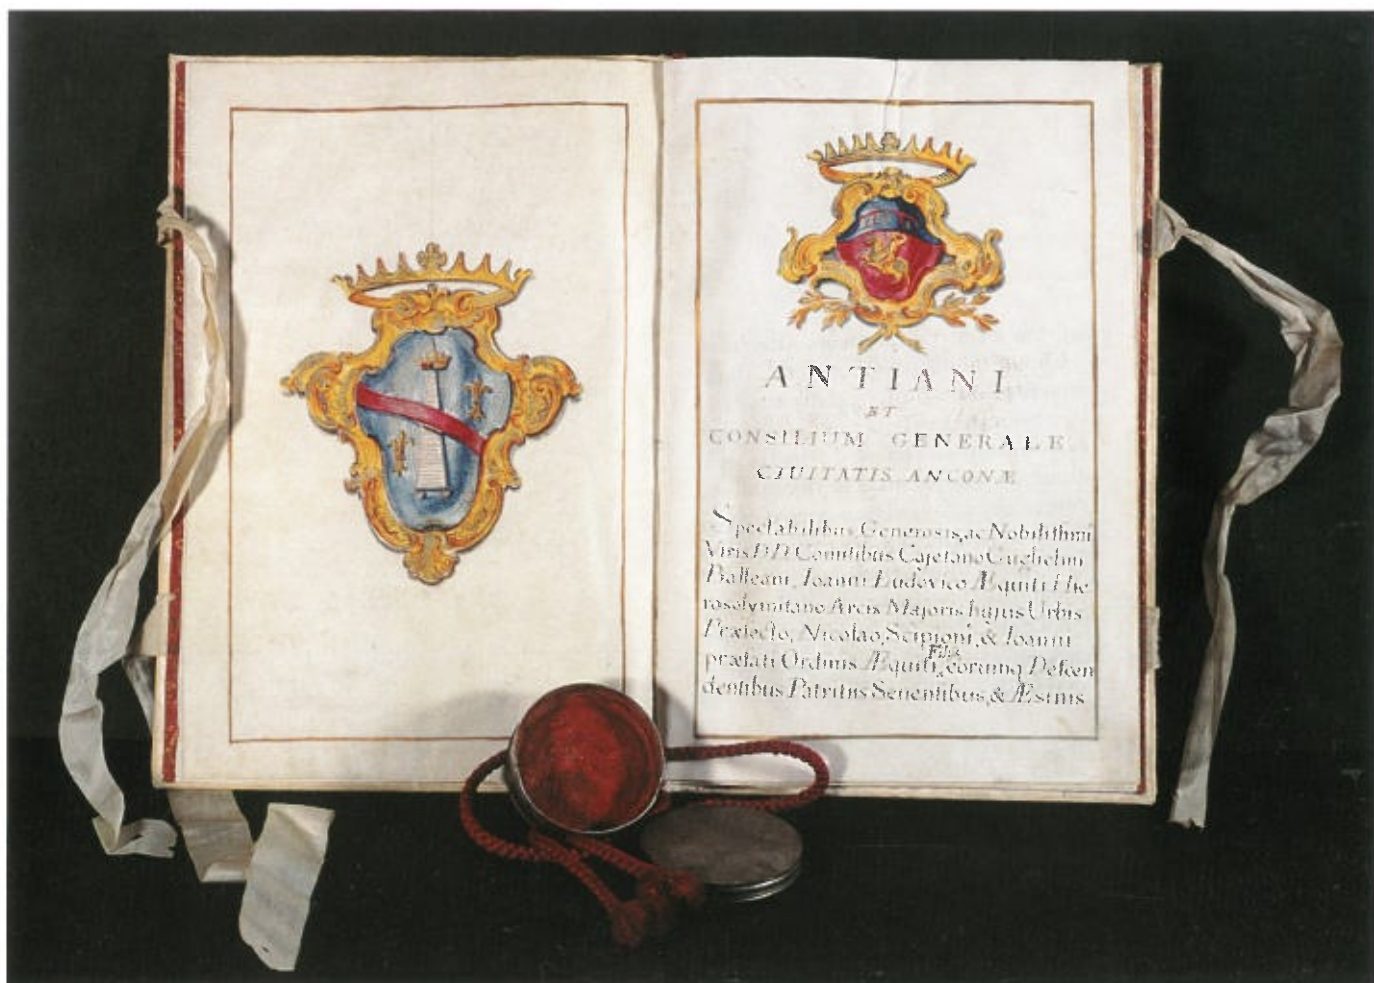 ANTIANI
ET
CONSILIUM GENERALE
CIUITATIS ANCONÆ
Spectabilibus Generosis, ac Nobilissimi
Viris DD. Comitibus Cajetano Guglielmi
Balleani, Ioanni Ludovico Æquiti Hie
rosolymitano Arcis Majoris hujus Urbis
Præfecto, Nicolao, Scipioni, & Ioanni
prælati Ordinis Æquiti, eorumq Descen
dentibus Patritiis Senentibus, & Æsinis